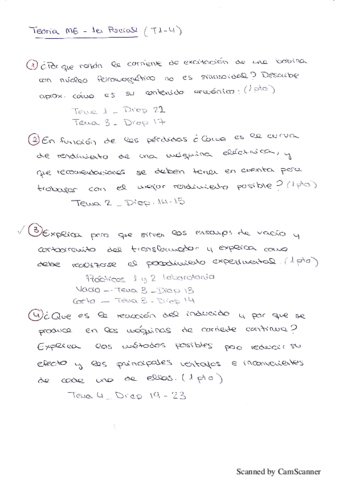 Teoria ME - 1er Parcial (T1-4)
① ¿Por que razón la corriente de excitación de una bobina
con núcleo ferromagnético no es sinusoidal? Describe
aprox. cómo es su contenido armónico. (1 pto)
Tema 1 - Diap 22
Tema 3 - Diap 17
② En función de las pérdidas ¿Cómo es la curva
de rendimiento de una máquina eléctrica, y
que recomendaciones se deben tener en cuenta para
trabajar con el mejor rendimiento posible? (1 pto)
Tema 2 - Diap. 14-15
✓ ③ Explica para que sirven los ensayos de vacío y
cortocircuito del transformador y explica como
debe realizarse el procedimiento experimental. (1 pto)
Prácticas 1 y 2 laboratorio
Vacío - Tema 3 - Diap 13
Corto - Tema 3 - Diap 14
④ ¿Que es la reacción del inducido y por que se
produce en las máquinas de corriente continua?
Explica los métodos posibles para reducir su
efecto y las principales ventajas e inconvenientes
de cada uno de ellos. (1 pto)
Tema 4 - Diap 19-23
Scanned by CamScanner